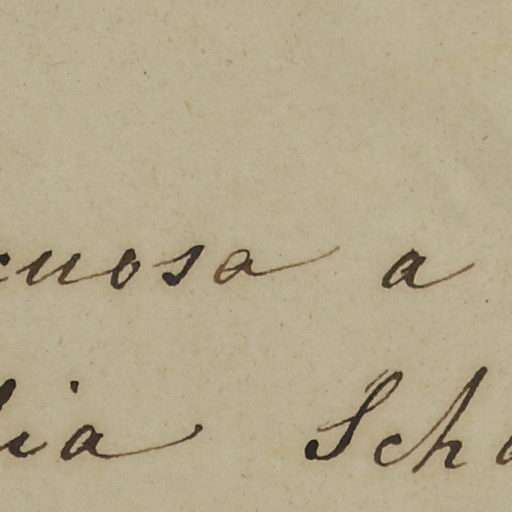 cuosa a
lia Scho